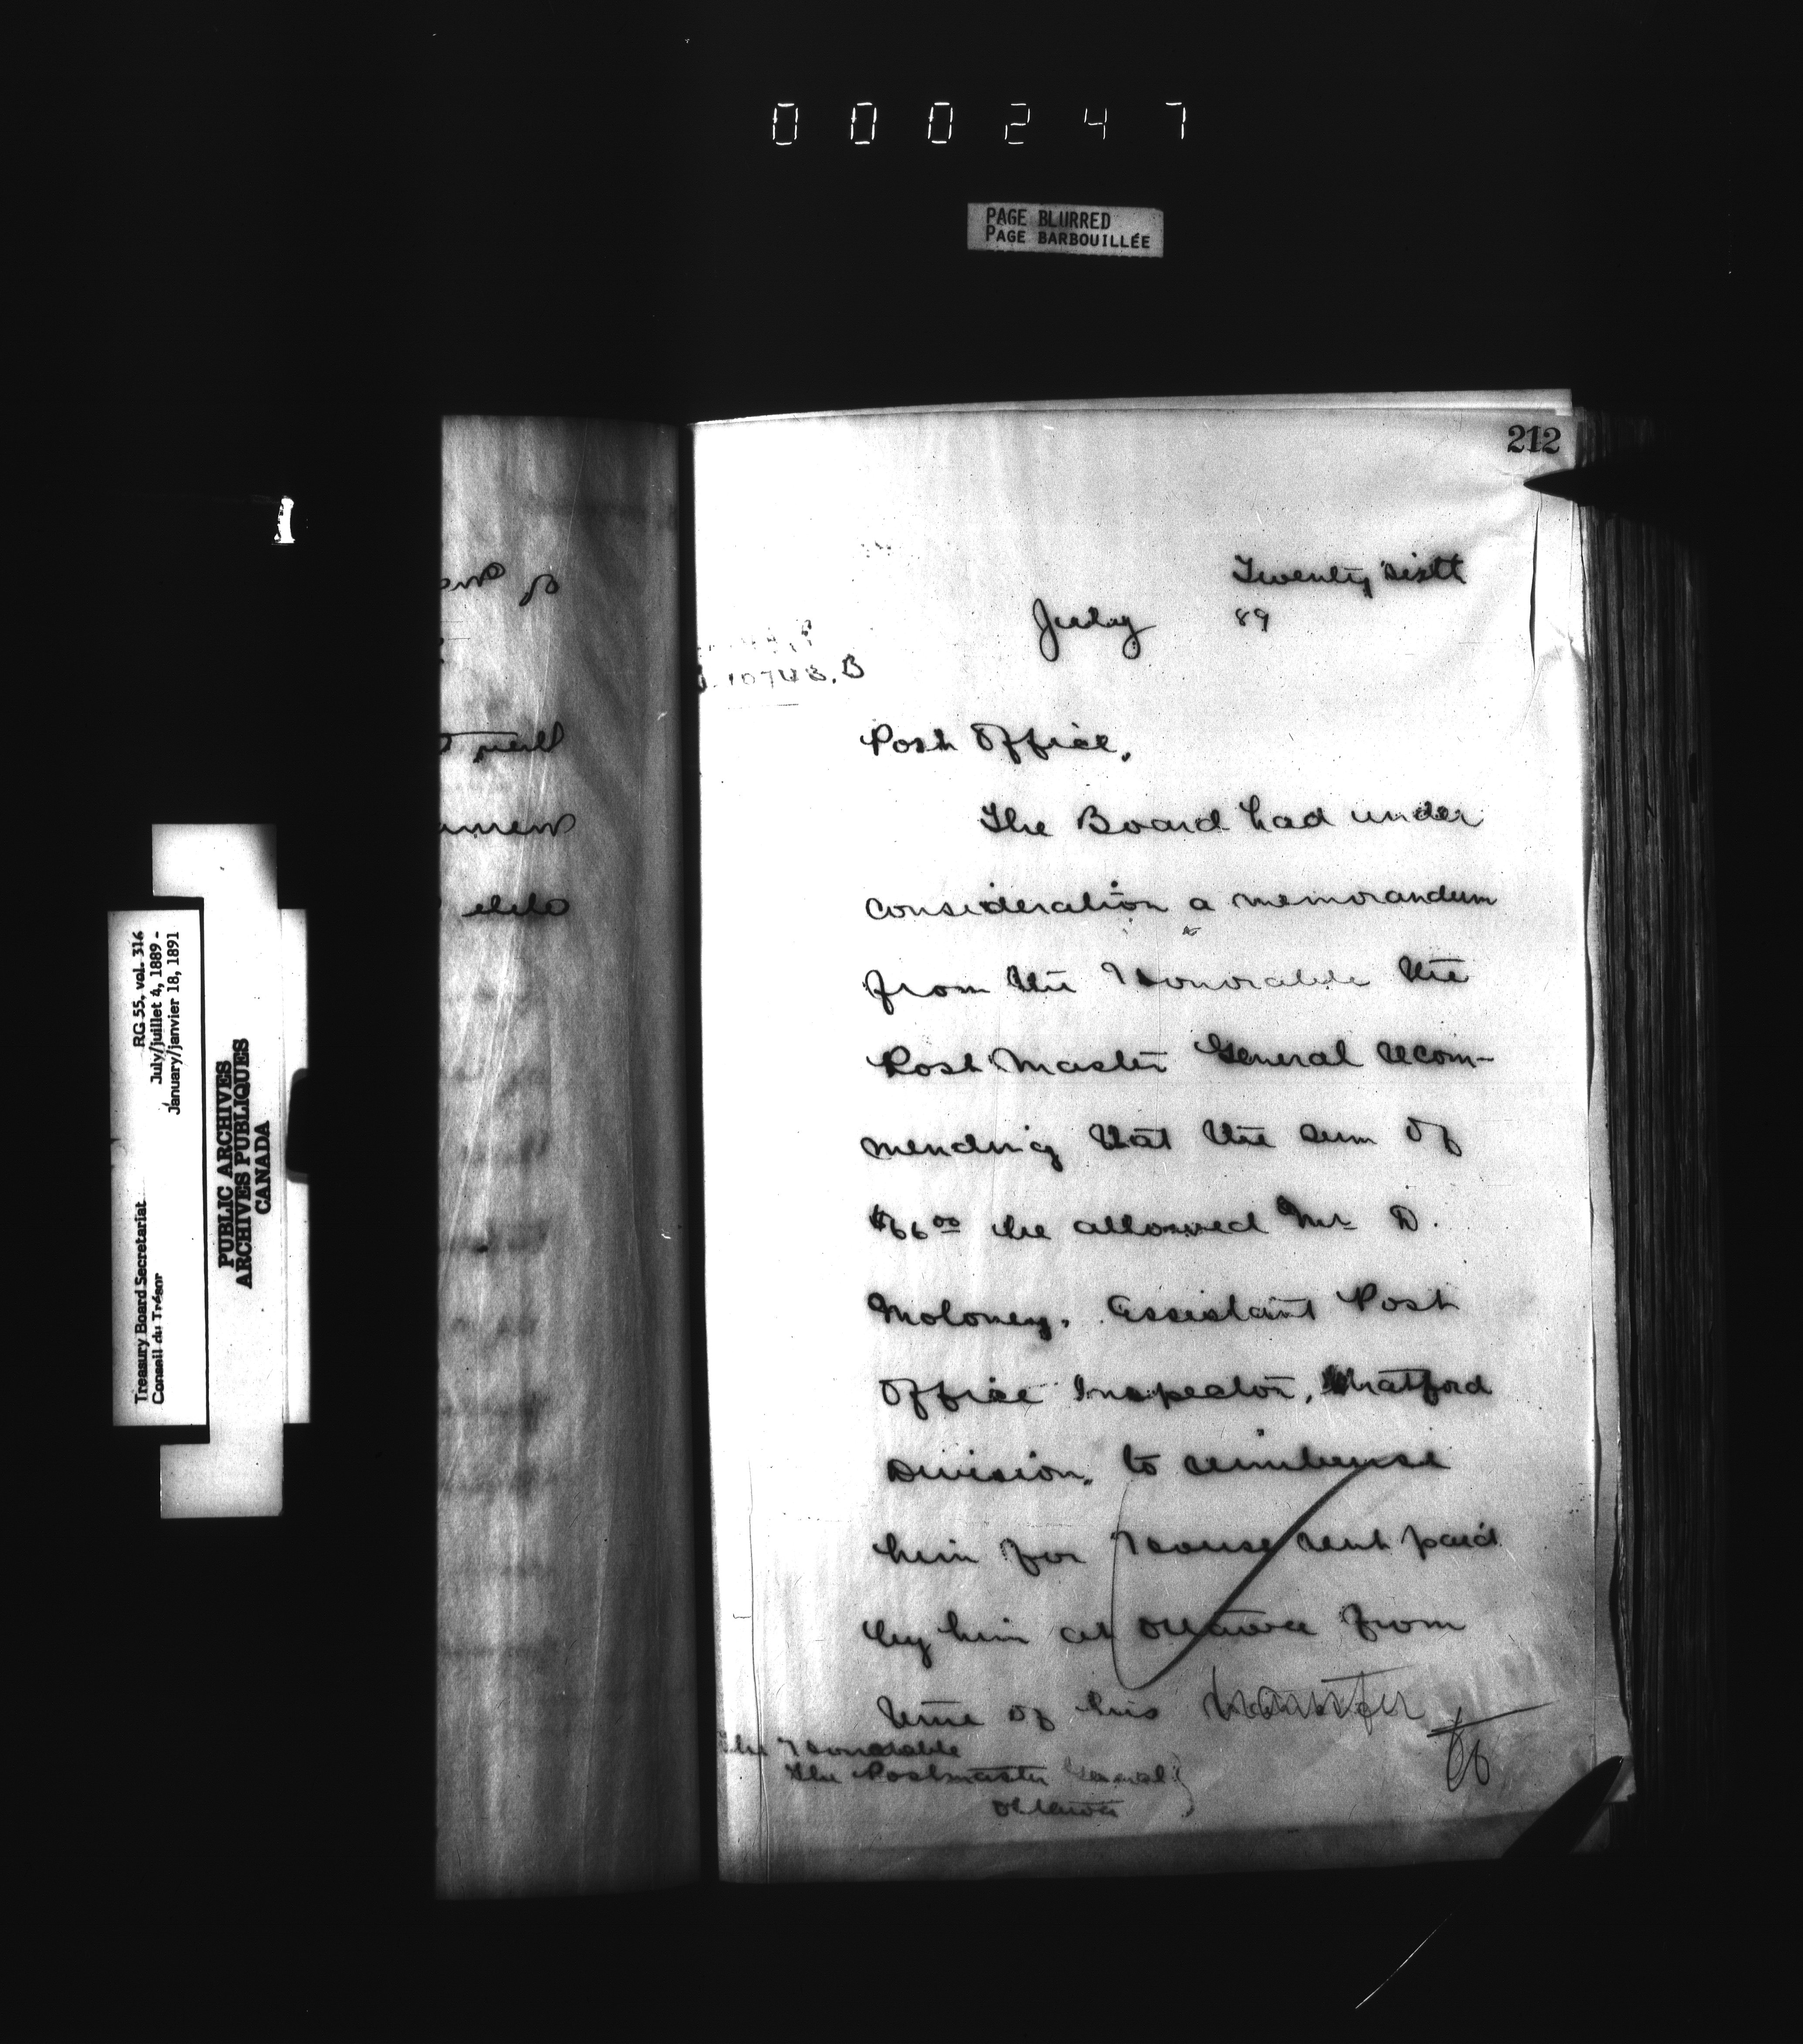 000247
PAGE BLURRED
PAGE BARBOUILLÉE
212
Twenty sixth
July 89
10743.B
Post Office.
The Board had under
consideration a memorandum
from the Honorable the
Post Master General recom-
mending that the sum of
$66 00 be allowed Mr D.
Moloney. Assistant Post
Office Inspector, Stratford
Division, to reimburse
him for House rent paid
by him at Ottawa from
time of his transfer
The Honorable
The Postmaster General
Ottawa
RG 55, vol. 316
July/juillet 4, 1889 -
January/janvier 18, 1891
Treasury Board Secretariat
Conseil du Trésor
PUBLIC ARCHIVES
ARCHIVES PUBLIQUES
CANADA